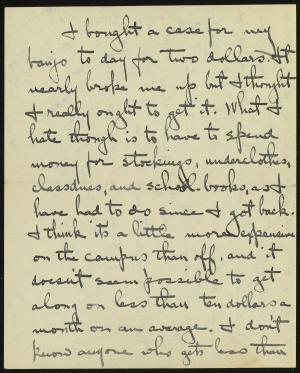 I bought a case for my
banjo to day for two dollars. It
nearly broke me up but I thought
I really ought to get it. What I
hate though is to have to spend
money for stockings, underclothes,
classdues, and school books, as I
have had to do since I got back.
I think its a little more expensive
on the campus than off, and it
doesn't seem possible to get
along on less than ten dollars a
month on an average. I don't
know anyone who gets less than